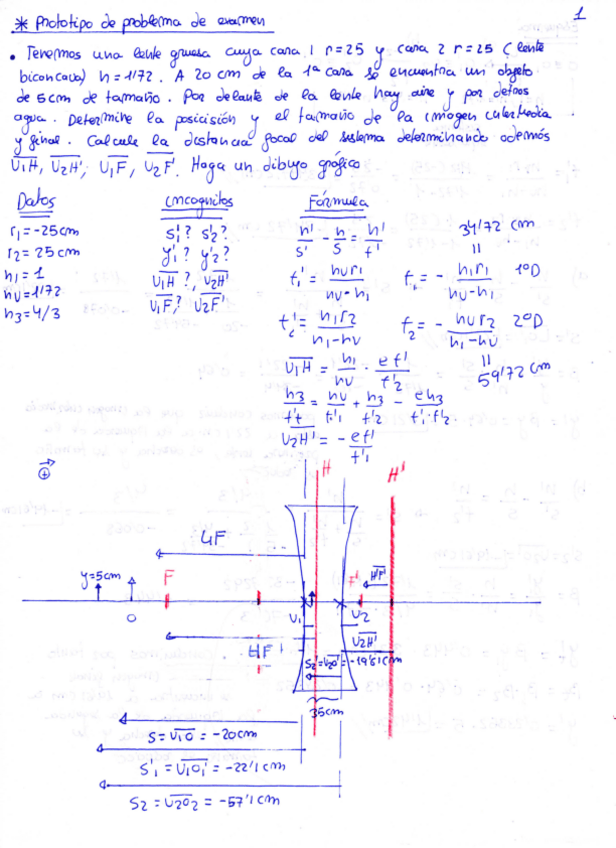 1
* Prototipo de problema de examen
• Tenemos una lente gruesa cuya cara 1 r=25 y cara 2 r=25 (lente
biconcava) n=1'72. A 20 cm de la 1ª cara se encuentra un objeto
de 5cm de tamaño. Por delante de la lente hay aire y por detras
agua. Determine la posicisión y el tamaño de la imagen intermedia
y final. Calcule la distancia focal del sistema determinando además
V₁H, V₂H', V₁F, V₂F'. Haga un dibujo gráfico
Datos
r₁=-25cm
r₂= 25cm
n₁=1
nv=1'72
n₃=4/3
Incognitas
s'₁? s'₂?
y'₁? y'₂?
V₁H ?, V₂H'
V₁F? V₂F'
Fórmula
n'/s' - n/s = n'/f'
34'72 cm
=
f'₁ = nv r₁/nv-n₁ f₁ = - n₁r₁/nv-n₁ 1ºD
f'₂ = n₁r₂/n₁-nv f₂ = - nv r₂/n₁-nv 2ºD
=
59'72 cm
V₁H = n₁/nv · e f'/f'₂
n₃/f't = nv/f'₁ + n₃/f'₂ - e n₃/f'₁·f'₂
V₂H' = - e f'/f'₁
⊕
H
H'
y=5cm
F
F'
H'F'
O
V₁
V₂
V₂H'
s₂'=V₂O'=-19'61cm
35cm
s = V₁O = -20cm
s'₁ = V₁O₁' = -22'1 cm
s₂ = V₂O₂ = -57'1 cm